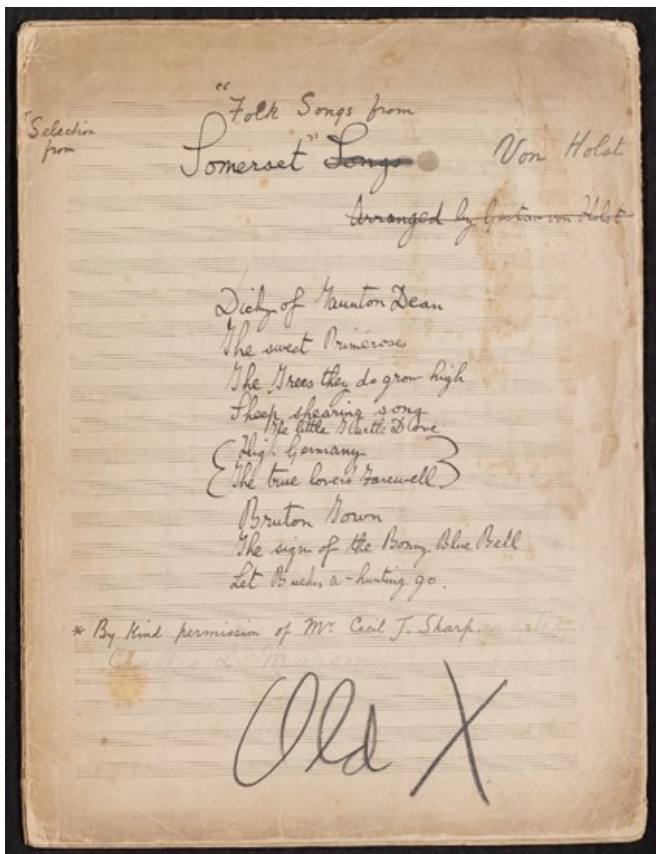 "Folk Songs from
"Selection
from
Somerset" Songs
Von Holst
Arranged by Gustav von Holst
Dicky of Taunton Dean
The sweet Primeroses
The Trees they do grow high
Sheep shearing song
The little Turtle Dove
High Germany
The true lovers Farewell
Bruton Town
The sign of the Bonny Blue Bell
Let Bucks a-hunting go.
* By Kind permission of Mr. Cecil J. Sharp
Charles L. Marson
Old X